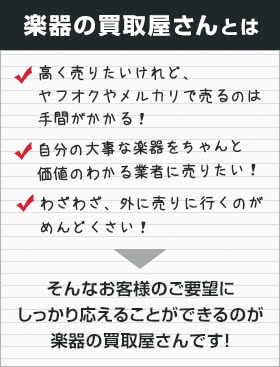 楽器の買取屋さんとは
高く売りたいけれど、
ヤフオクやメルカリで売るのは
手間がかかる！
自分の大事な楽器をちゃんと
価値のわかる業者に売りたい！
わざわざ、外に売りに行くのが
めんどくさい！
そんなお客様のご要望に
しっかり応えることができるのが
楽器の買取屋さんです!